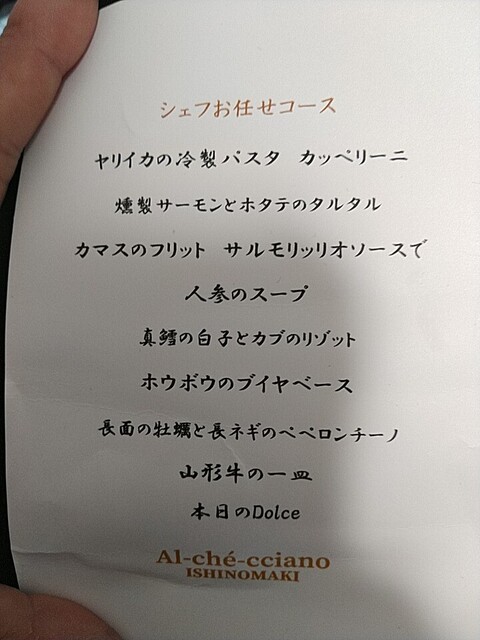 シェフお任せコース
ヤリイカの冷製パスタ カッペリーニ
燻製サーモンとホタテのタルタル
カマスのフリット サルモリッリオソースで
人参のスープ
真鱈の白子とカブのリゾット
ホウボウのブイヤベース
長面の牡蠣と長ネギのペペロンチーノ
山形牛の一皿
本日のDolce
Al-ché-cciano
ISHINOMAKI